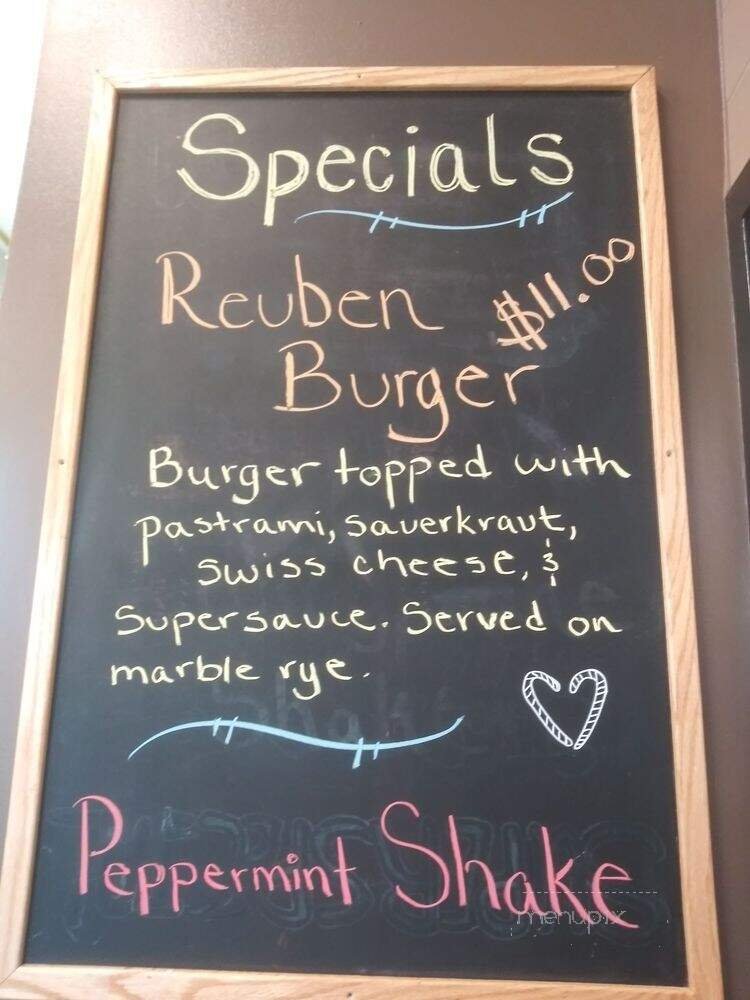 Specials
Reuben $11.00
Burger
Burger topped with
pastrami, sauerkraut,
swiss cheese, &
Supersauce. Served on
marble rye.
Peppermint Shake
menupix